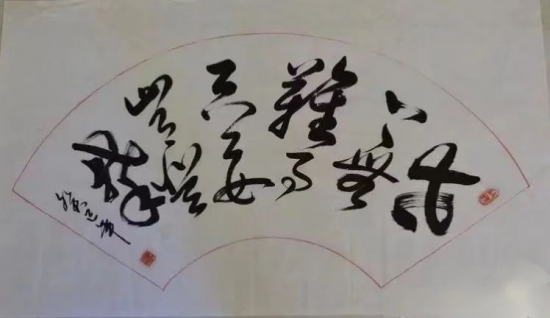 世
上無
難事
只要
肯登
攀